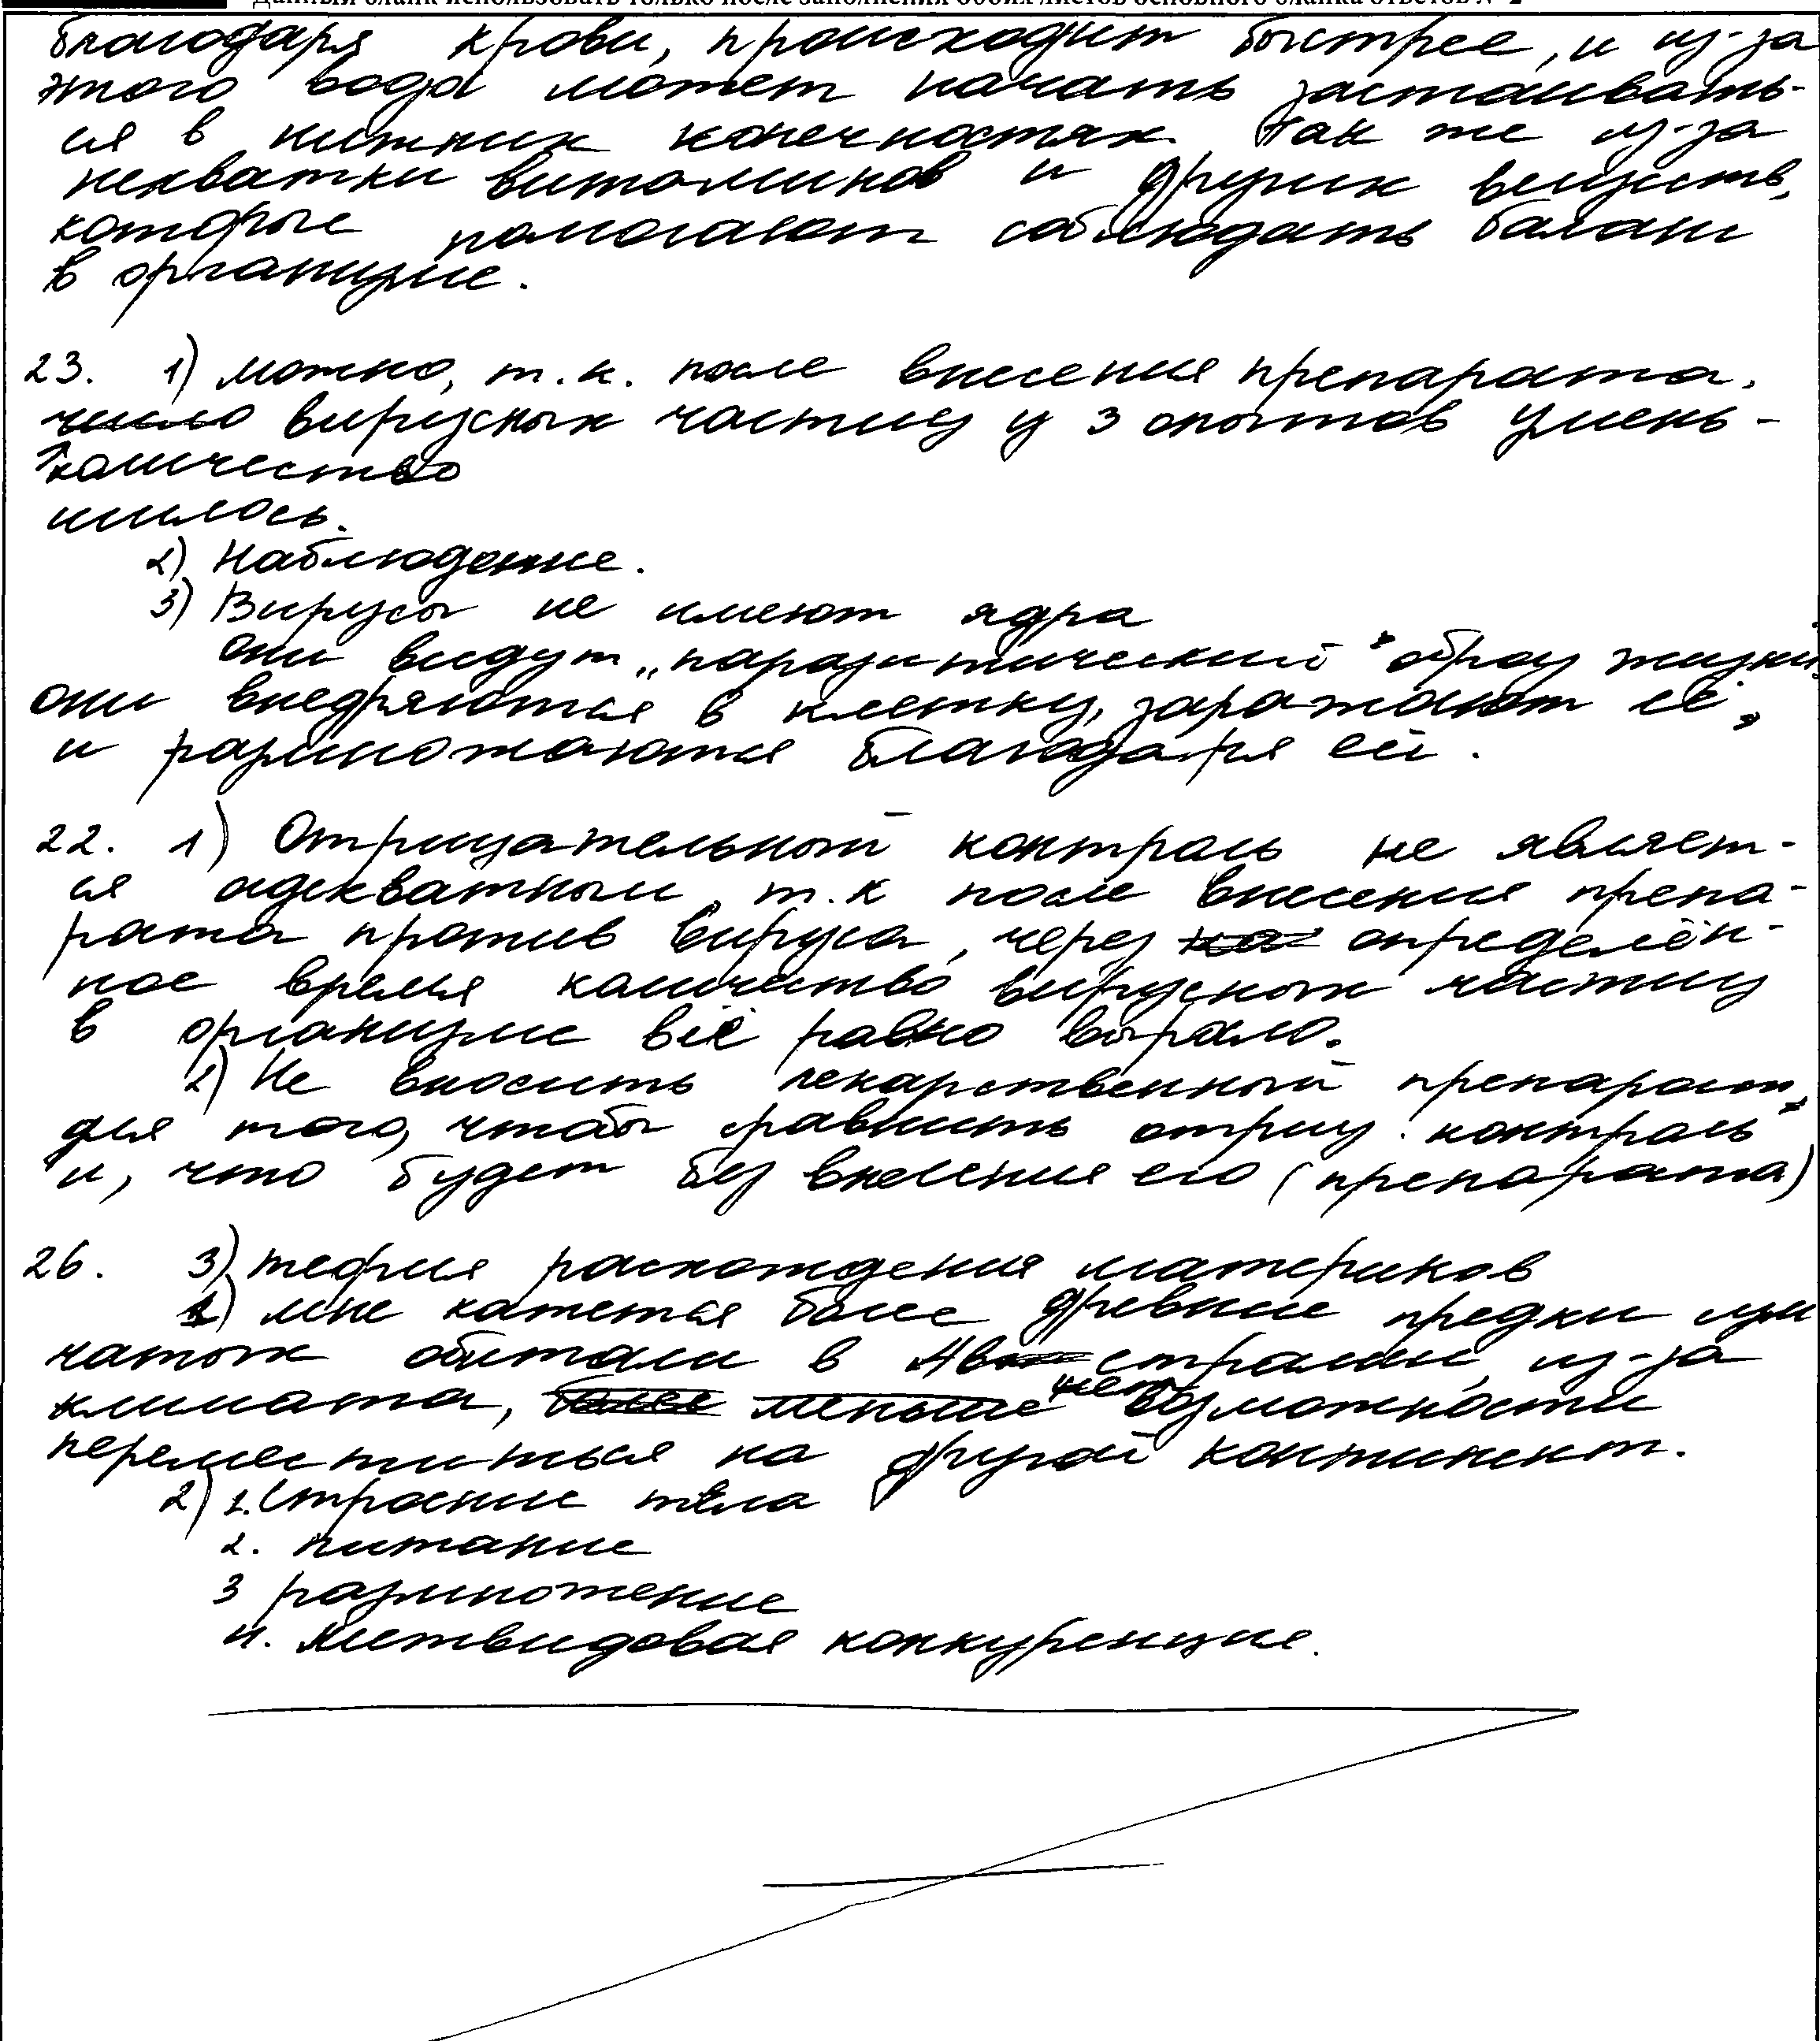 Данный бланк использовать только после заполнения обоих листов основного бланка ответов № 2
благодаря крови, происходит быстрее, и из-за
этого вода может начать застаивать-
ся в нижних конечностях. Так же из-за
нехватки витаминов и других веществ,
которые помогают соблюдать баланс
в организме.
23. 1) Можно, т.к. после внесения препарата,
число вирусных частиц у 3 опытов умень-
количество
шилось.
2) Наблюдение.
3) Вирусы не имеют ядра
они ведут „паразитический" образ жизни,
они внедряются в клетку, заражают её,
и размножаются благодаря ей.
22. 1) Отрицательный контроль не являет-
ся адекватным, т.к после внесения препа-
рата против вируса, через определён-
ное время количество вирусных частиц
в организме всё равно выросло.
2) Не вносить лекарственный препарат,
для того, чтобы сравнить отриц. контроль
и, что будет без внесения его (препарата)
26. 3) теория расхождения материков
1) мне кажется более древние предки
чатых обитали в Австралии, из-за
климата, более меньше нет возможности
переместиться на другой континент.
2) 1. Строение тела
2. питание
3 размножение
4. Межвидовая конкуренция.